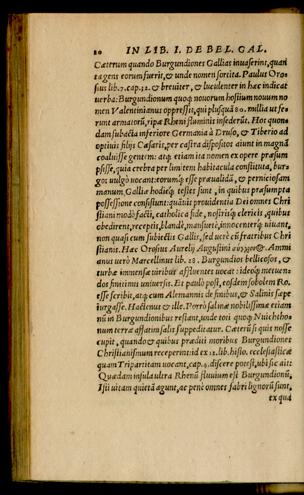 20 IN LIB. I. DE BEL. GAL.
Cæterum quando Burgundiones Gallias inuaserint, quàm
ta gens eorum fuerit, & unde nomen sortita. Paulus Oro-
sius lib. 7. cap. 32. & breuiter, & luculenter in hæc indicat
uerba: Burgundionum quoque nouorum hostium nouum no
men Valentinianus oppressit, qui plusquā 80. millia ut fe-
runt armatorū, ripæ Rheni fluminis insederūt. Hos quon-
dam subacta inferiore Germania à Druso, & Tiberio ad
optiuis filijs Cæsaris, per castra dispositos aiunt in magnā
coaluisse gentem: atque etiam ita nomen ex opere præsum-
psisse, quia crebra per limitem habitacula constituta, bur-
gos uulgò uocant: eorumque esse præualidā, & perniciosam
manum, Galliæ hodieque testes sunt, in quibus præsumpta
possessione consistunt: quāuis prouidentia Dei omnes Chri
stiani modò facti, catholica fide, nostrisque clericis, quibus
obedirent, receptis, blandè, mansuetè, innocenterque uiuant,
non quasi cum subiectis Gallis, sed uerè cū fratribus Chri
stianis. Hac Orosius Aurelij Augustini Ammi
anus uerò Marcellinus lib. 28. Burgundios bellicosos, &
turbæ immensæ uiribus affluentes uocat: ideoque metuen-
dos finitimis uniuersis. Et paulò post, eosdem sobolem Ro.
esse scribit, atque cum Alemannis de finibus, & Salinis sæpe
iurgasse. Hactenus & ille. Porrò salinæ nobilissimæ etiam
nū in Burgundionibus restant, unde toti quoque Nuichtho-
num terræ affatim salis suppeditatur. Cæterū si quis nosse
cupit, quando & quibus præditi moribus Burgundiones
Christianismum receperint: id ex 12. lib. histo. ecclesiasticæ
quam Tripartitam uocant, cap. 4. discere potest, ubi sic ait:
Quædam insula ultra Rhenū fluuium est Burgundionū.
Isti uitam quietā agunt, ac penè omnes fabri lignorū sunt,
ex qua